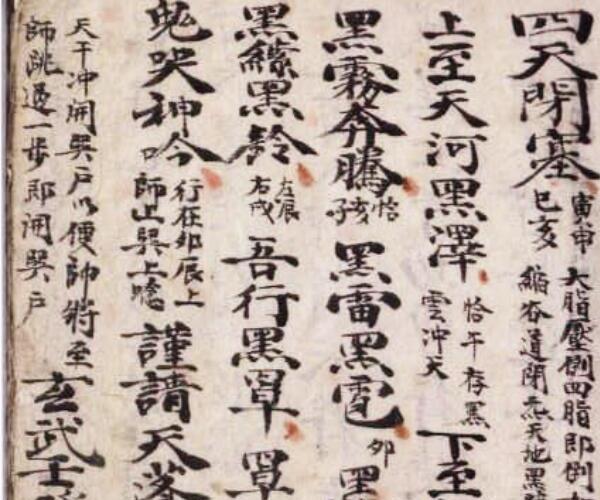 四天閉塞
寅申
巳亥
大脂壓倒四脂即倒
道閉炁天地黑
上至天河黑澤
恰午存黑
雲冲天
下至
黑霧奔騰
恰
亥子
黑雷黑雹
卯
黑
黑緣黑鈴
左辰
右戌
吾行黑罩
罩
鬼哭神吟
行在卯辰上
師上巽上唸
謹請天蓬
天干冲開巽戶以便帥將至
師跳過一步即開巽戶
玄武壬